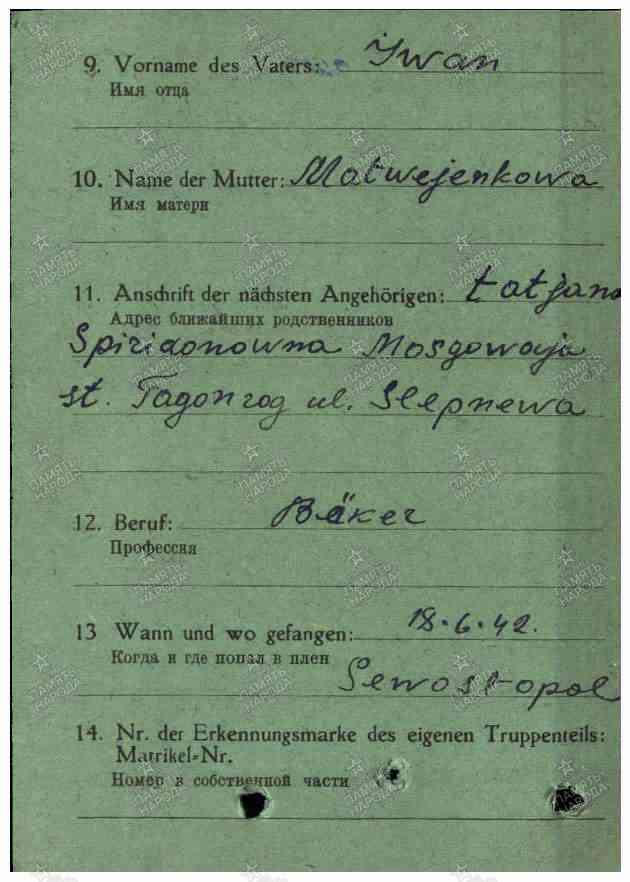 9. Vorname des Vaters: Iwan
Имя отца
10. Name der Mutter: Matwejenkowa
Имя матери
11. Anschrift der nächsten Angehörigen: tatjana
Адрес ближайших родственников
Spiridonowna Mosgowaja
st. Tagonrog ul. Slepnewa
12. Beruf: Bäker
Профессия
13 Wann und wo gefangen: 18.6.42.
Когда и где попал в плен
Sewostopol
14. Nr. der Erkennungsmarke des eigenen Truppenteils:
Matrikel-Nr.
Номер в собственной части
ПАМЯТЬ НАРОДА